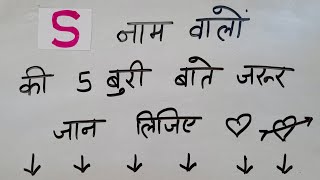 S नाम वालों
की 5 बुरी बाते जरूर
जान लिजिए ♡ ♡
↓ ↓ ↓ ↓ ↓ ↓